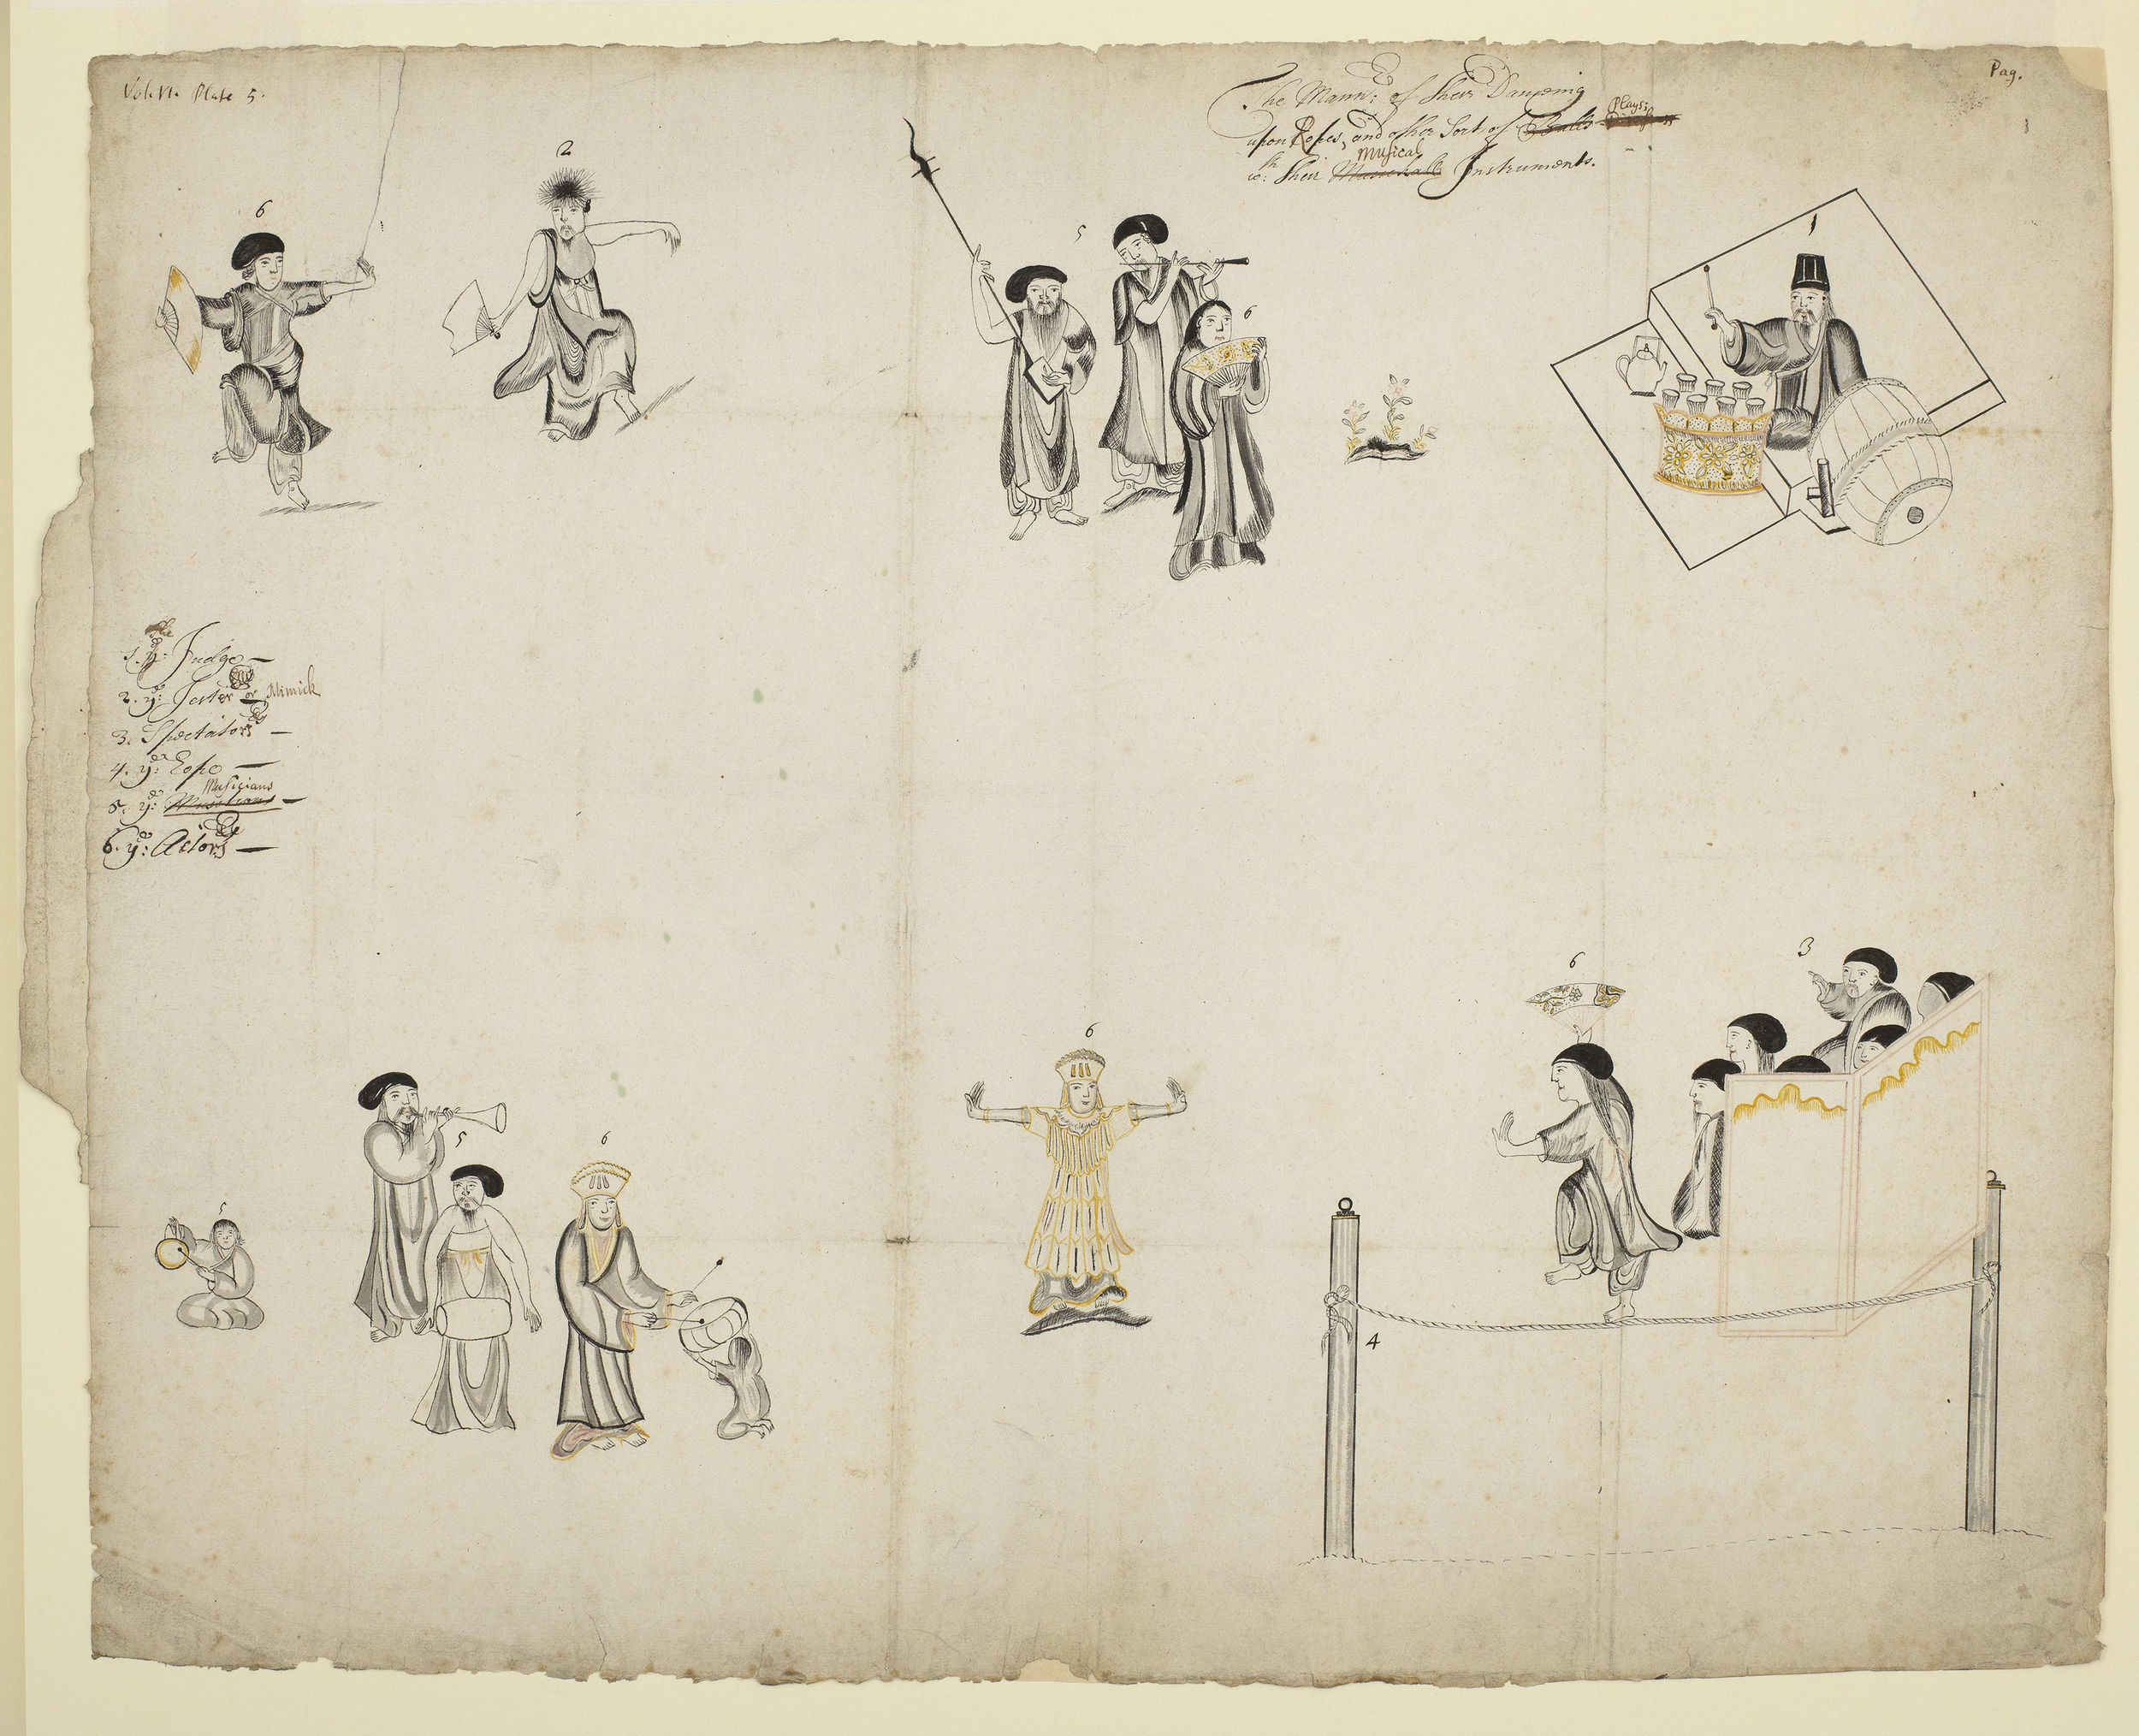 Vol: VI. Plate 5.
Pag.
The Mann: of their Dancing
upon Ropes, and other Sort of Balls Plays;
wth: their Musical Instruments.
6
2
5
6
1
The
1. ye: Judge —
2. ye: Jester or Mimick
3. Spectators —
4. ye: Rope —
Musicians
5. ye: —
6. ye: Actors —
6
3
6
5
6
5
4